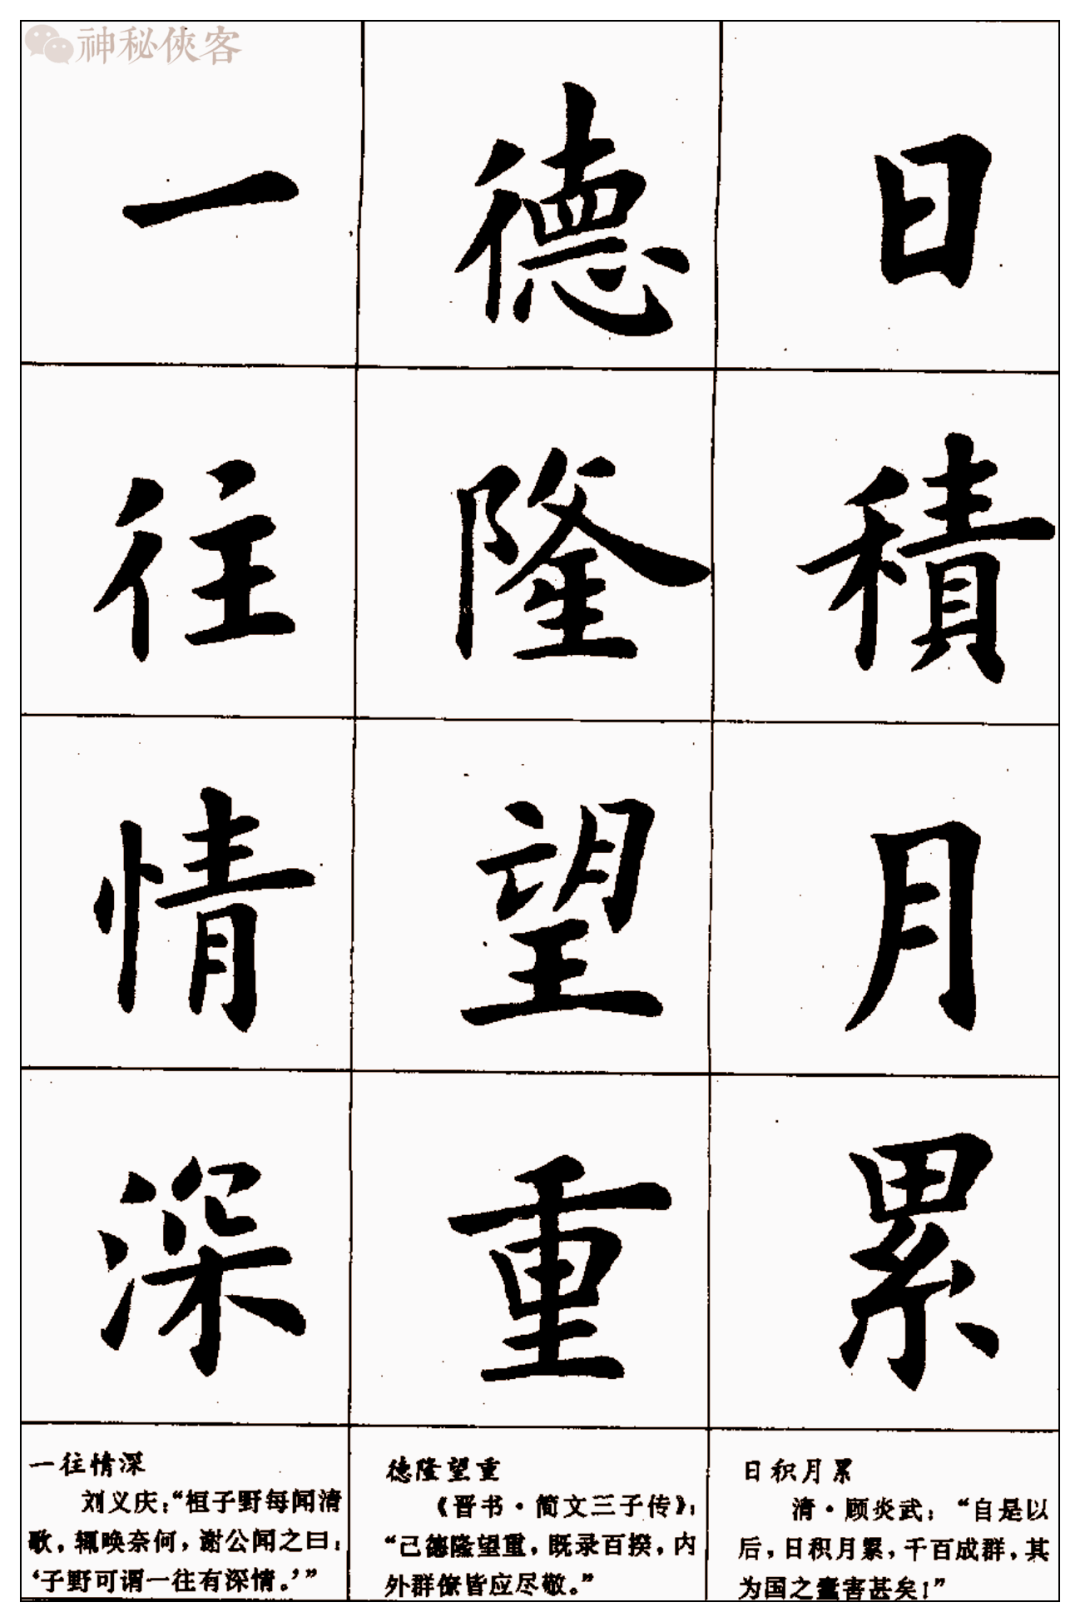 神秘俠客
日積月累
德隆望重
一往情深
一往情深
刘义庆：“桓子野每闻清
歌，辄唤奈何，谢公闻之曰：
‘子野可谓一往有深情。’”
德隆望重
《晋书·简文三子传》：
“己德隆望重，既录百揆，内
外群僚皆应尽敬。”
日积月累
清·顾炎武：“自是以
后，日积月累，千百成群，其
为国之蠹害甚矣！”